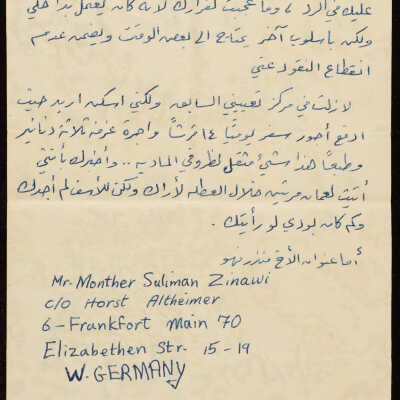 عليك في الرد ، وما عجبت لقرارك لأنه كان يعمل بداخلي
ولكن باسلوب آخر يحتاج الى بعض الوقت ويضمن عدم
انقطاع النقود عني
لا زلت في مركز تعييني السابق ولكني اسكن اربد حيث
ادفع أجور سفر يوميًا ١٤ قرشًا واجرة غرفة ثلاثة دنانير
وطبعًا هذا شيء مثقل لظروفي المادية .. وأخبرك بأنني
أتيت لعمان مرتين خلال العطلة لأراك ولكن للأسف لم أجدك
وكم كان بودي لو رأيتك .
أما عنوان الأخ منذر فهو
Mr. Monther Suliman Zinawi
c/o Horst Altheimer
6 - Frankfort Main 70
Elizabethen Str. 15 - 19
W. GERMANY